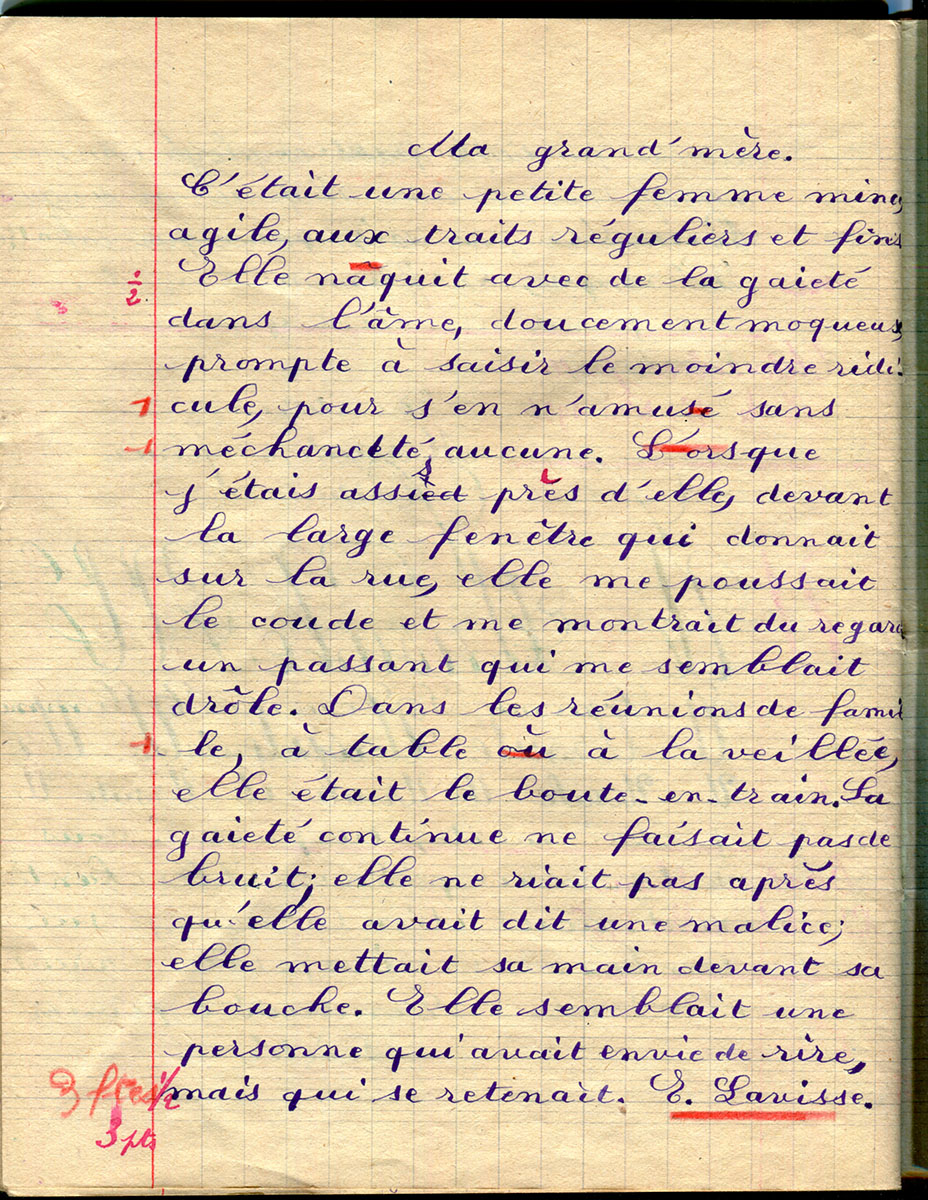 Ma grand'mère.
C'était une petite femme mince,
agile, aux traits réguliers et fins
Elle nâquit avec de la gaieté
1/2
dans l'âme, doucement moqueuse,
prompte à saisir le moindre ridi-
1 cule, pour s'en n'amusé sans
1 méchanceté, aucune. L'orsque
j'étais assied près d'elle, devant
la large fenêtre qui donnait
sur la rue, elle me poussait
le coude et me montrait du regard
un passant qui me semblait
drôle. Dans les réunions de famil
1 le, à table où à la veillée,
elle était le boute-en-train. Sa
gaieté continue ne faisait pas de
bruit; elle ne riait pas après
qu'elle avait dit une malice;
elle mettait sa main devant sa
bouche. Elle semblait une
personne qui avait envie de rire,
mais qui se retenait. E. Lavisse.
3 ftes 1/2
3 pts